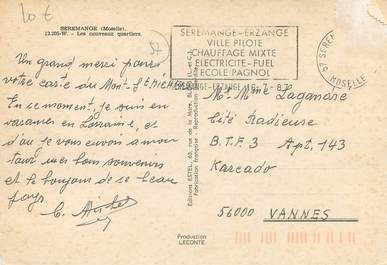 20 €
SEREMANGE (Moselle)
13.205-W. - Les nouveaux quartiers.
57
Un grand merci pour
votre carte du Mont St Michel
En ce moment, je suis en
vacances en Lorraine, et
d'où je vous envoie amou
tous mes bons souvenirs
et le bonjour de ce beau
pays.
Editions ESTEL, 63, rue de la Mare, BL
Fabrication française - Reproduction
SEREMANGE-ERZANGE
VILLE PILOTE
CHAUFFAGE MIXTE
ELECTRICITE - FUEL
ECOLE PAGNOL
57 SEREM
MOSELLE
Mr Mme Lagandre
Cité Radieuse
B.T.F. 3 Apt. 143
Karcado
56000 VANNES
Production
LECONTE